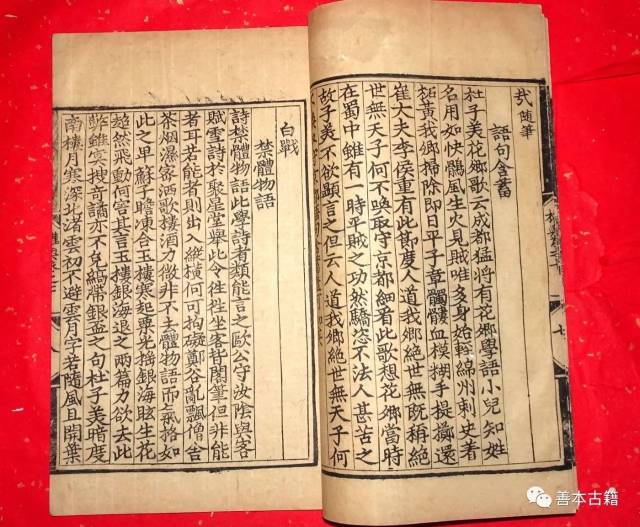 哉 隨筆
語句含蓄
杜子美花卿歌云成都猛將有花卿學語小兒知姓
名用如快鶻風生火見賊唯多身始輕綿州刺史著
柘黃我卿掃除即日平子章髑髏血模糊手提擲還
崔大夫李侯重有此節度人道我卿絕世無既稱絕
世無天子何不喚取守京都細看此歌想花卿當時
在蜀中雖有一時平賊之功然驕恣不法人甚苦之
故子美不欲顯言之但云人道我卿絕世無天子何
白戰
禁體物語
詩禁體物語此學詩者類能言之歐公守汝陰與客
賦雪詩於聚星堂舉此令往往坐客皆閣筆但非能
者耳若能者則出入縱橫何可拘礙鄭谷亂飄僧舍
茶烟濕密洒歌樓酒力微非不去體物語而氣格如
此之卑蘇子瞻凍合玉樓寒起粟光搖銀海眩生花
超然飛動何害其言玉樓銀海退之兩篇力欲去此
弊雖冥搜奇譎亦不免縞帶銀盃之句杜子美暗度
南樓月寒深北渚雲初不避雲月字若隨風且開葉
善本古籍